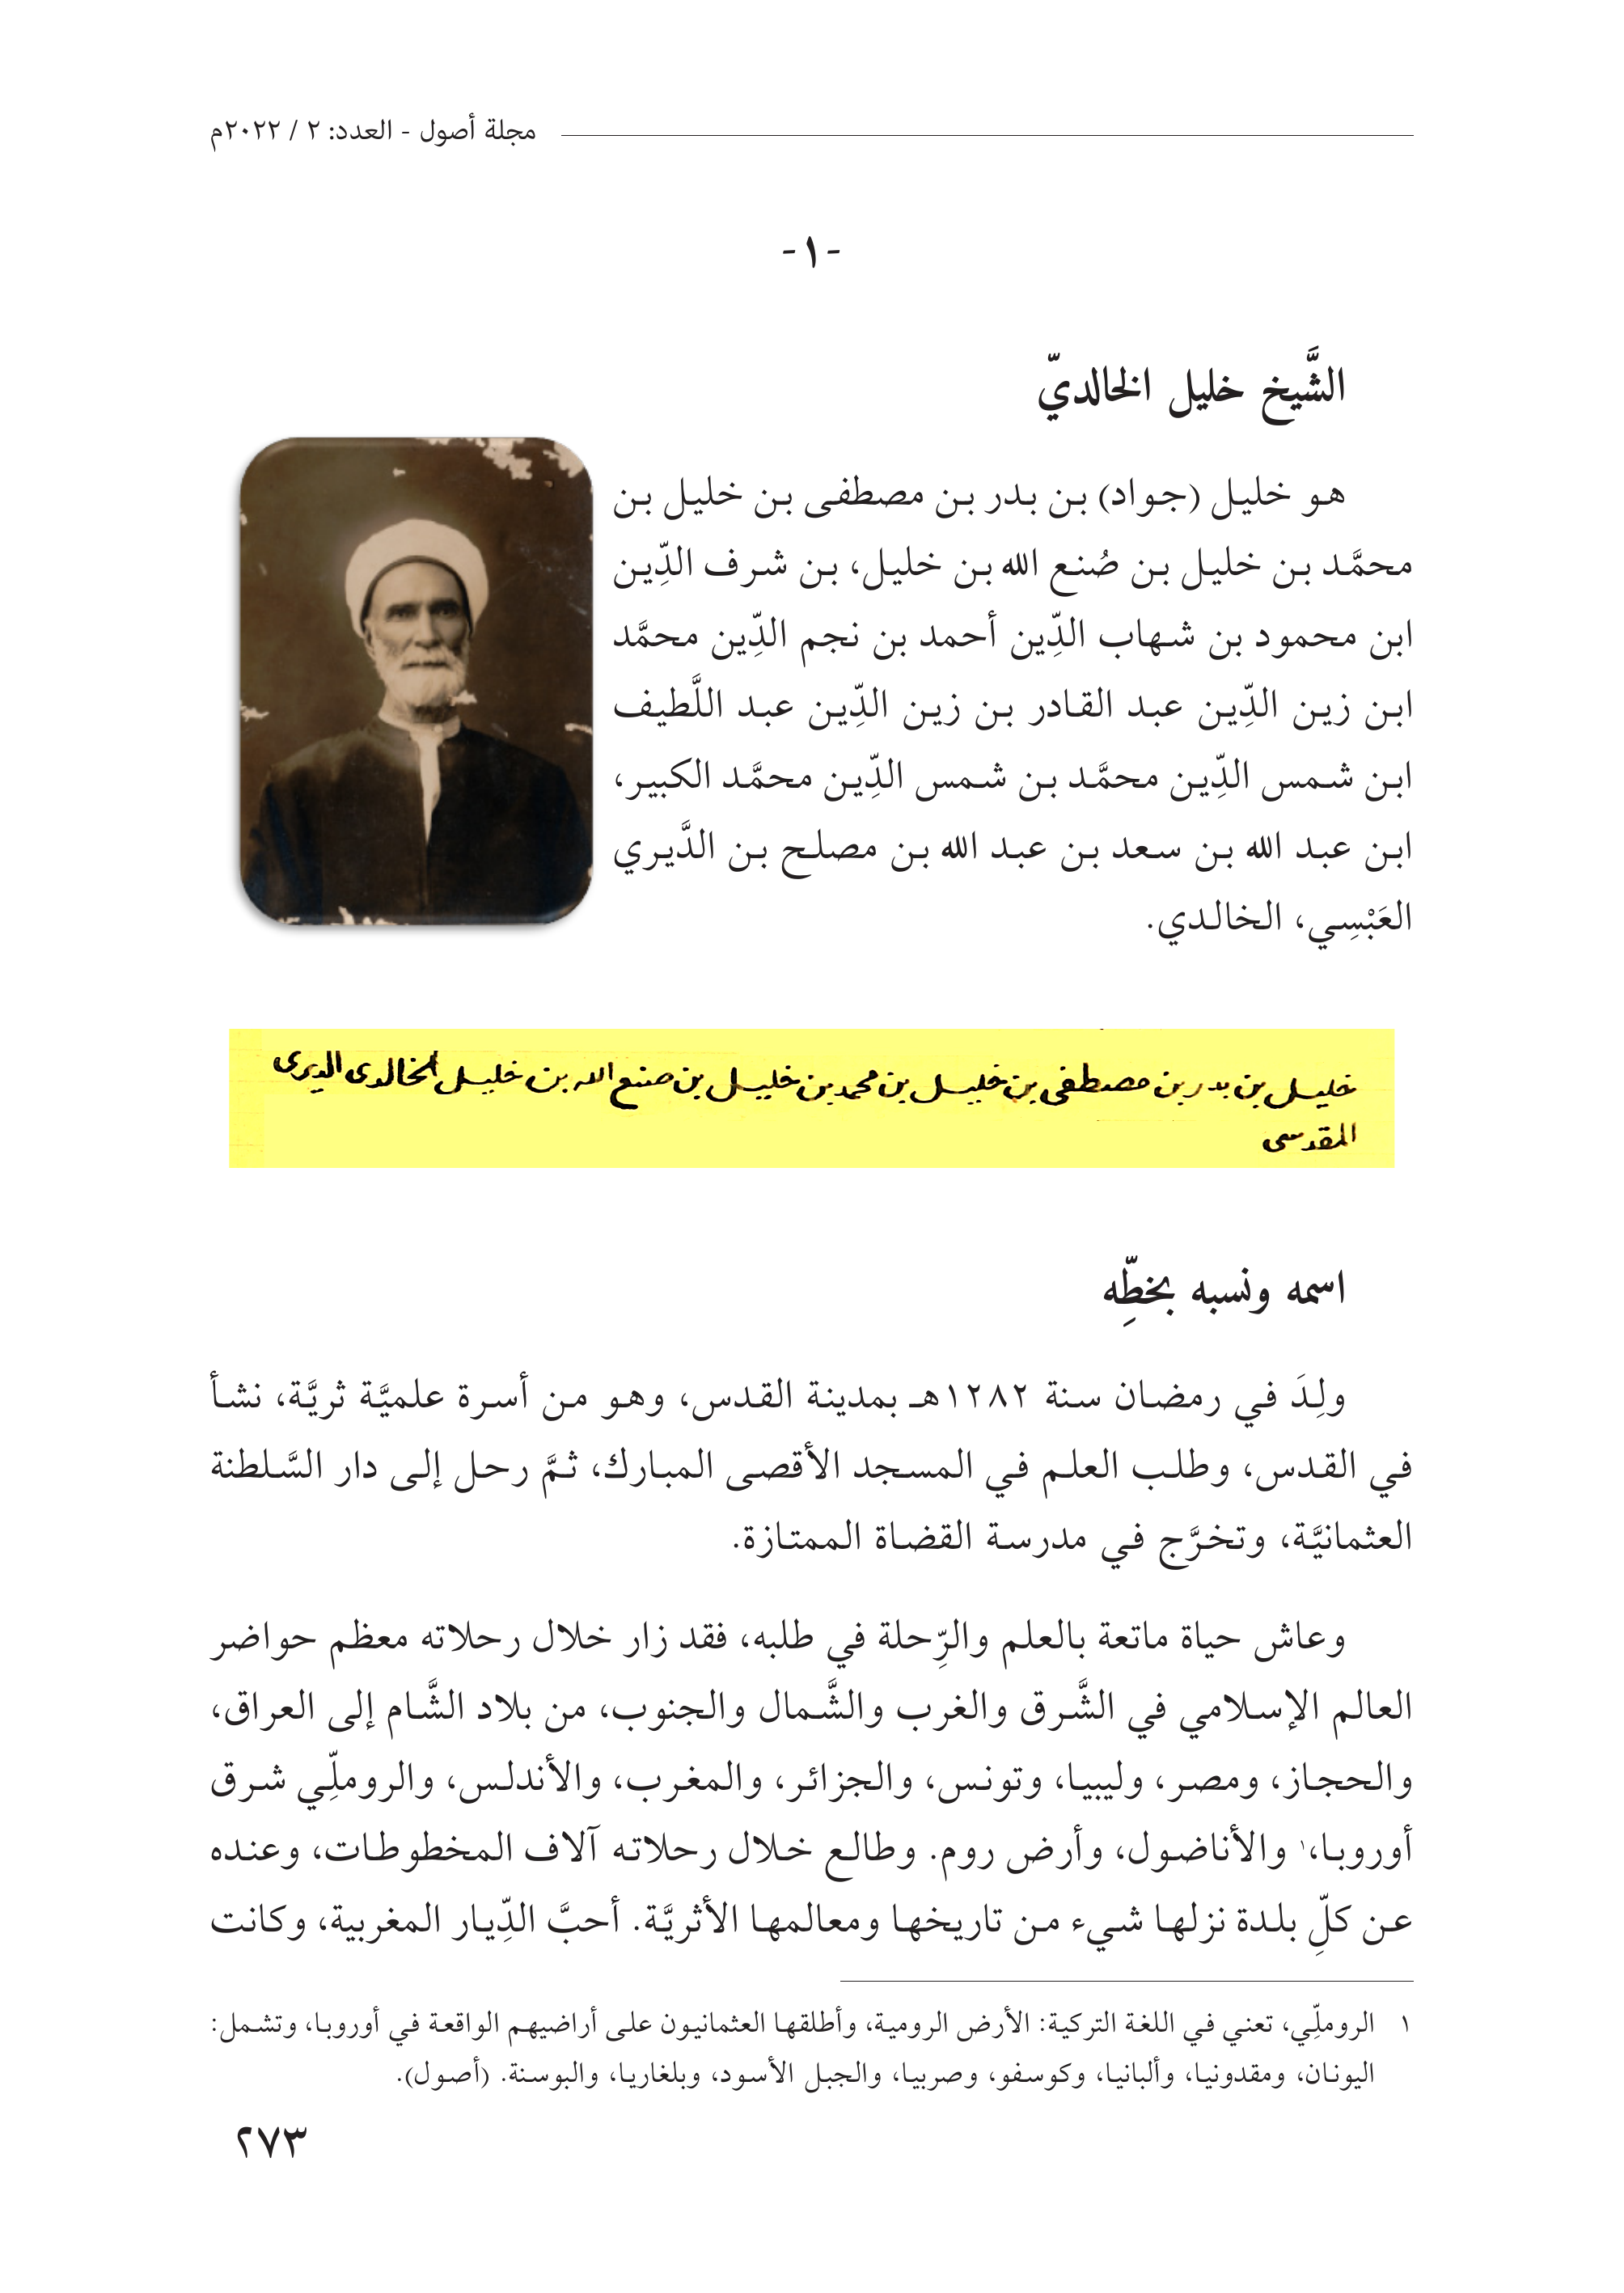 مجلة أصول - العدد: ٢ / ٢٠٢٢م
-١-
الشَّيخ خليل الخالديّ
هو خليل (جواد) بن بدر بن مصطفى بن خليل بن
محمَّد بن خليل بن صُنع الله بن خليل، بن شرف الدِّين
ابن محمود بن شهاب الدِّين أحمد بن نجم الدِّين محمَّد
ابن زين الدِّين عبد القادر بن زين الدِّين عبد اللَّطيف
ابن شمس الدِّين محمَّد بن شمس الدِّين محمَّد الكبير،
ابن عبد الله بن سعد بن عبد الله بن مصلح بن الدَّيري
العَبْسِي، الخالدي.
خليل بن بدر بن مصطفى بن خليل بن محمد بن خليل بن صنع الله بن خليل الخالدى الديرى
المقدسى
اسمه ونسبه بخطِّه
ولِدَ في رمضان سنة ١٢٨٢هـ بمدينة القدس، وهو من أسرة علميَّة ثريَّة، نشأ
في القدس، وطلب العلم في المسجد الأقصى المبارك، ثمَّ رحل إلى دار السَّلطنة
العثمانيَّة، وتخرَّج في مدرسة القضاة الممتازة.
وعاش حياة ماتعة بالعلم والرِّحلة في طلبه، فقد زار خلال رحلاته معظم حواضر
العالم الإسلامي في الشَّرق والغرب والشَّمال والجنوب، من بلاد الشَّام إلى العراق،
والحجاز، ومصر، وليبيا، وتونس، والجزائر، والمغرب، والأندلس، والروملِّي شرق
أوروبا،١ والأناضول، وأرض روم. وطالع خلال رحلاته آلاف المخطوطات، وعنده
عن كلِّ بلدة نزلها شيء من تاريخها ومعالمها الأثريَّة. أحبَّ الدِّيار المغربية، وكانت
١ الروملِّي، تعني في اللغة التركية: الأرض الرومية، وأطلقها العثمانيون على أراضيهم الواقعة في أوروبا، وتشمل:
اليونان، ومقدونيا، وألبانيا، وكوسفو، وصربيا، والجبل الأسود، وبلغاريا، والبوسنة. (أصول).
٢٧٣